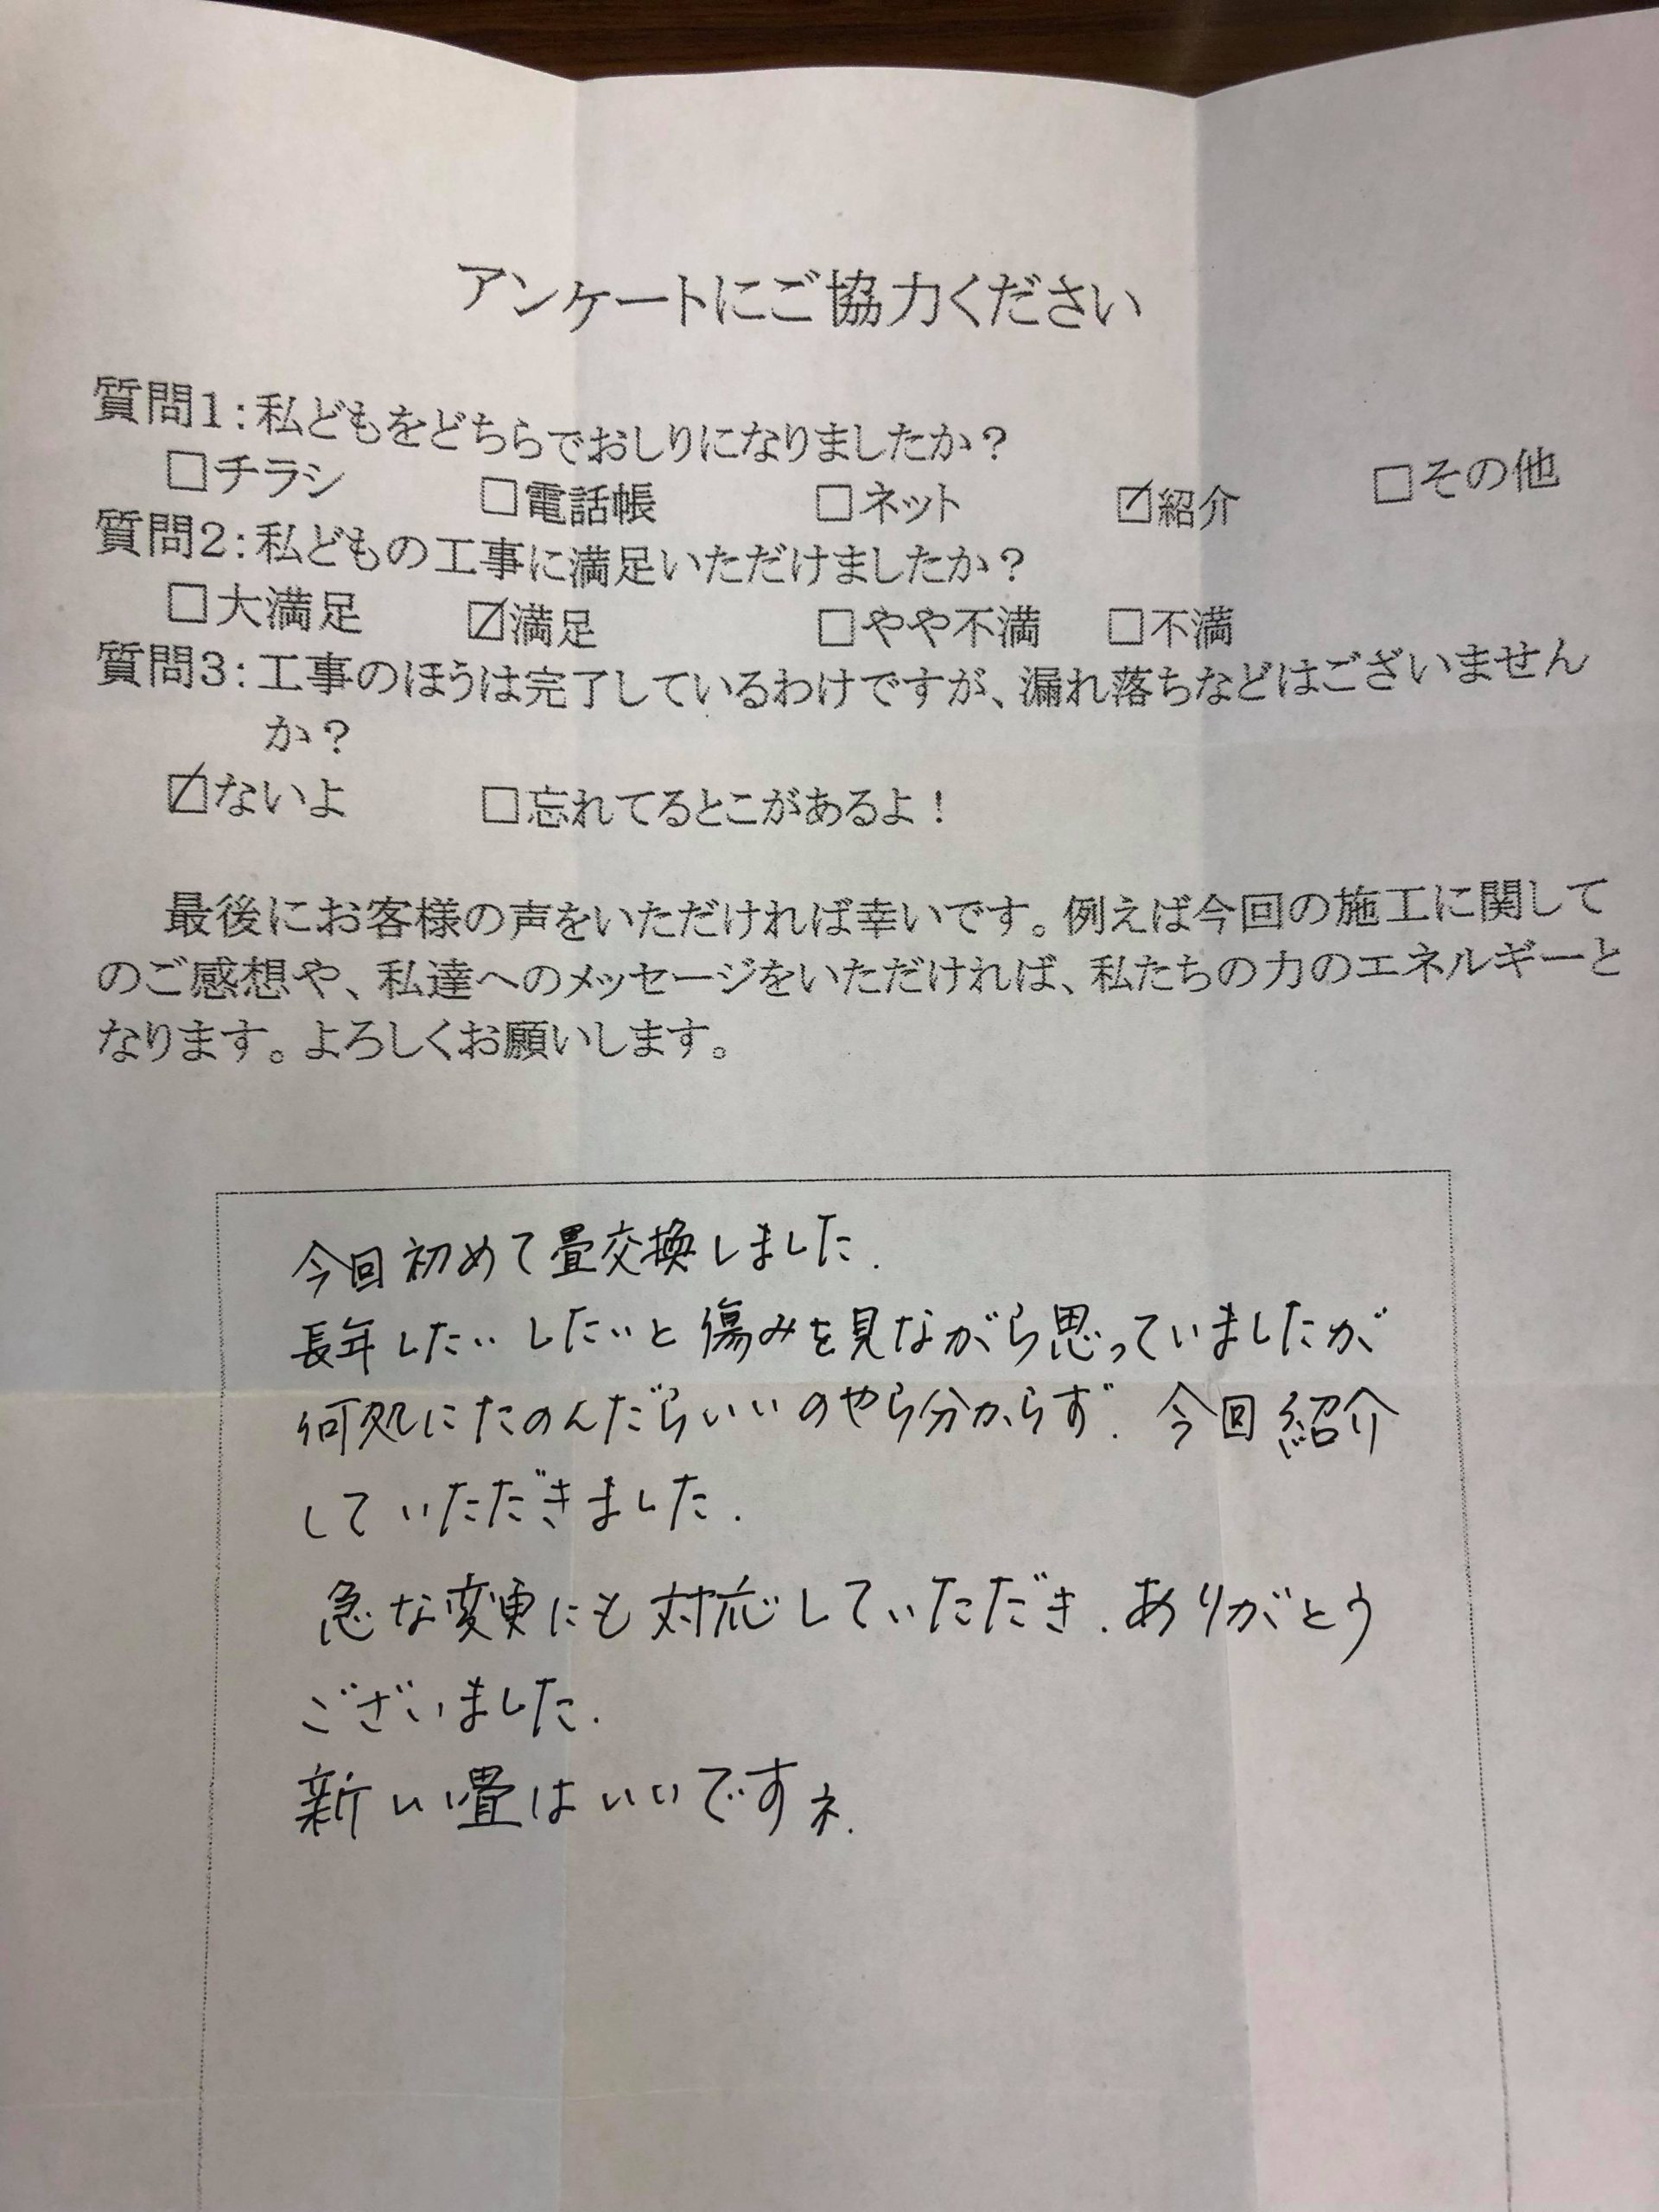 アンケートにご協力ください
質問1:私どもをどちらでおしりになりましたか?
□チラシ □電話帳 □ネット ☑紹介 □その他
質問2:私どもの工事に満足いただけましたか?
□大満足 ☑満足 □やや不満 □不満
質問3:工事のほうは完了しているわけですが、漏れ落ちなどはございません
か?
☑ないよ □忘れてるとこがあるよ!
最後にお客様の声をいただければ幸いです。例えば今回の施工に関して
のご感想や、私達へのメッセージをいただければ、私たちの力のエネルギーと
なります。よろしくお願いします。
今回初めて畳交換しました.
長年したいしたいと傷みを見ながら思っていましたが
何処にたのんだらいいのやら分からず.今回紹介
していただきました.
急な変更にも対応していただき.ありがとう
ございました.
新しい畳はいいですネ.